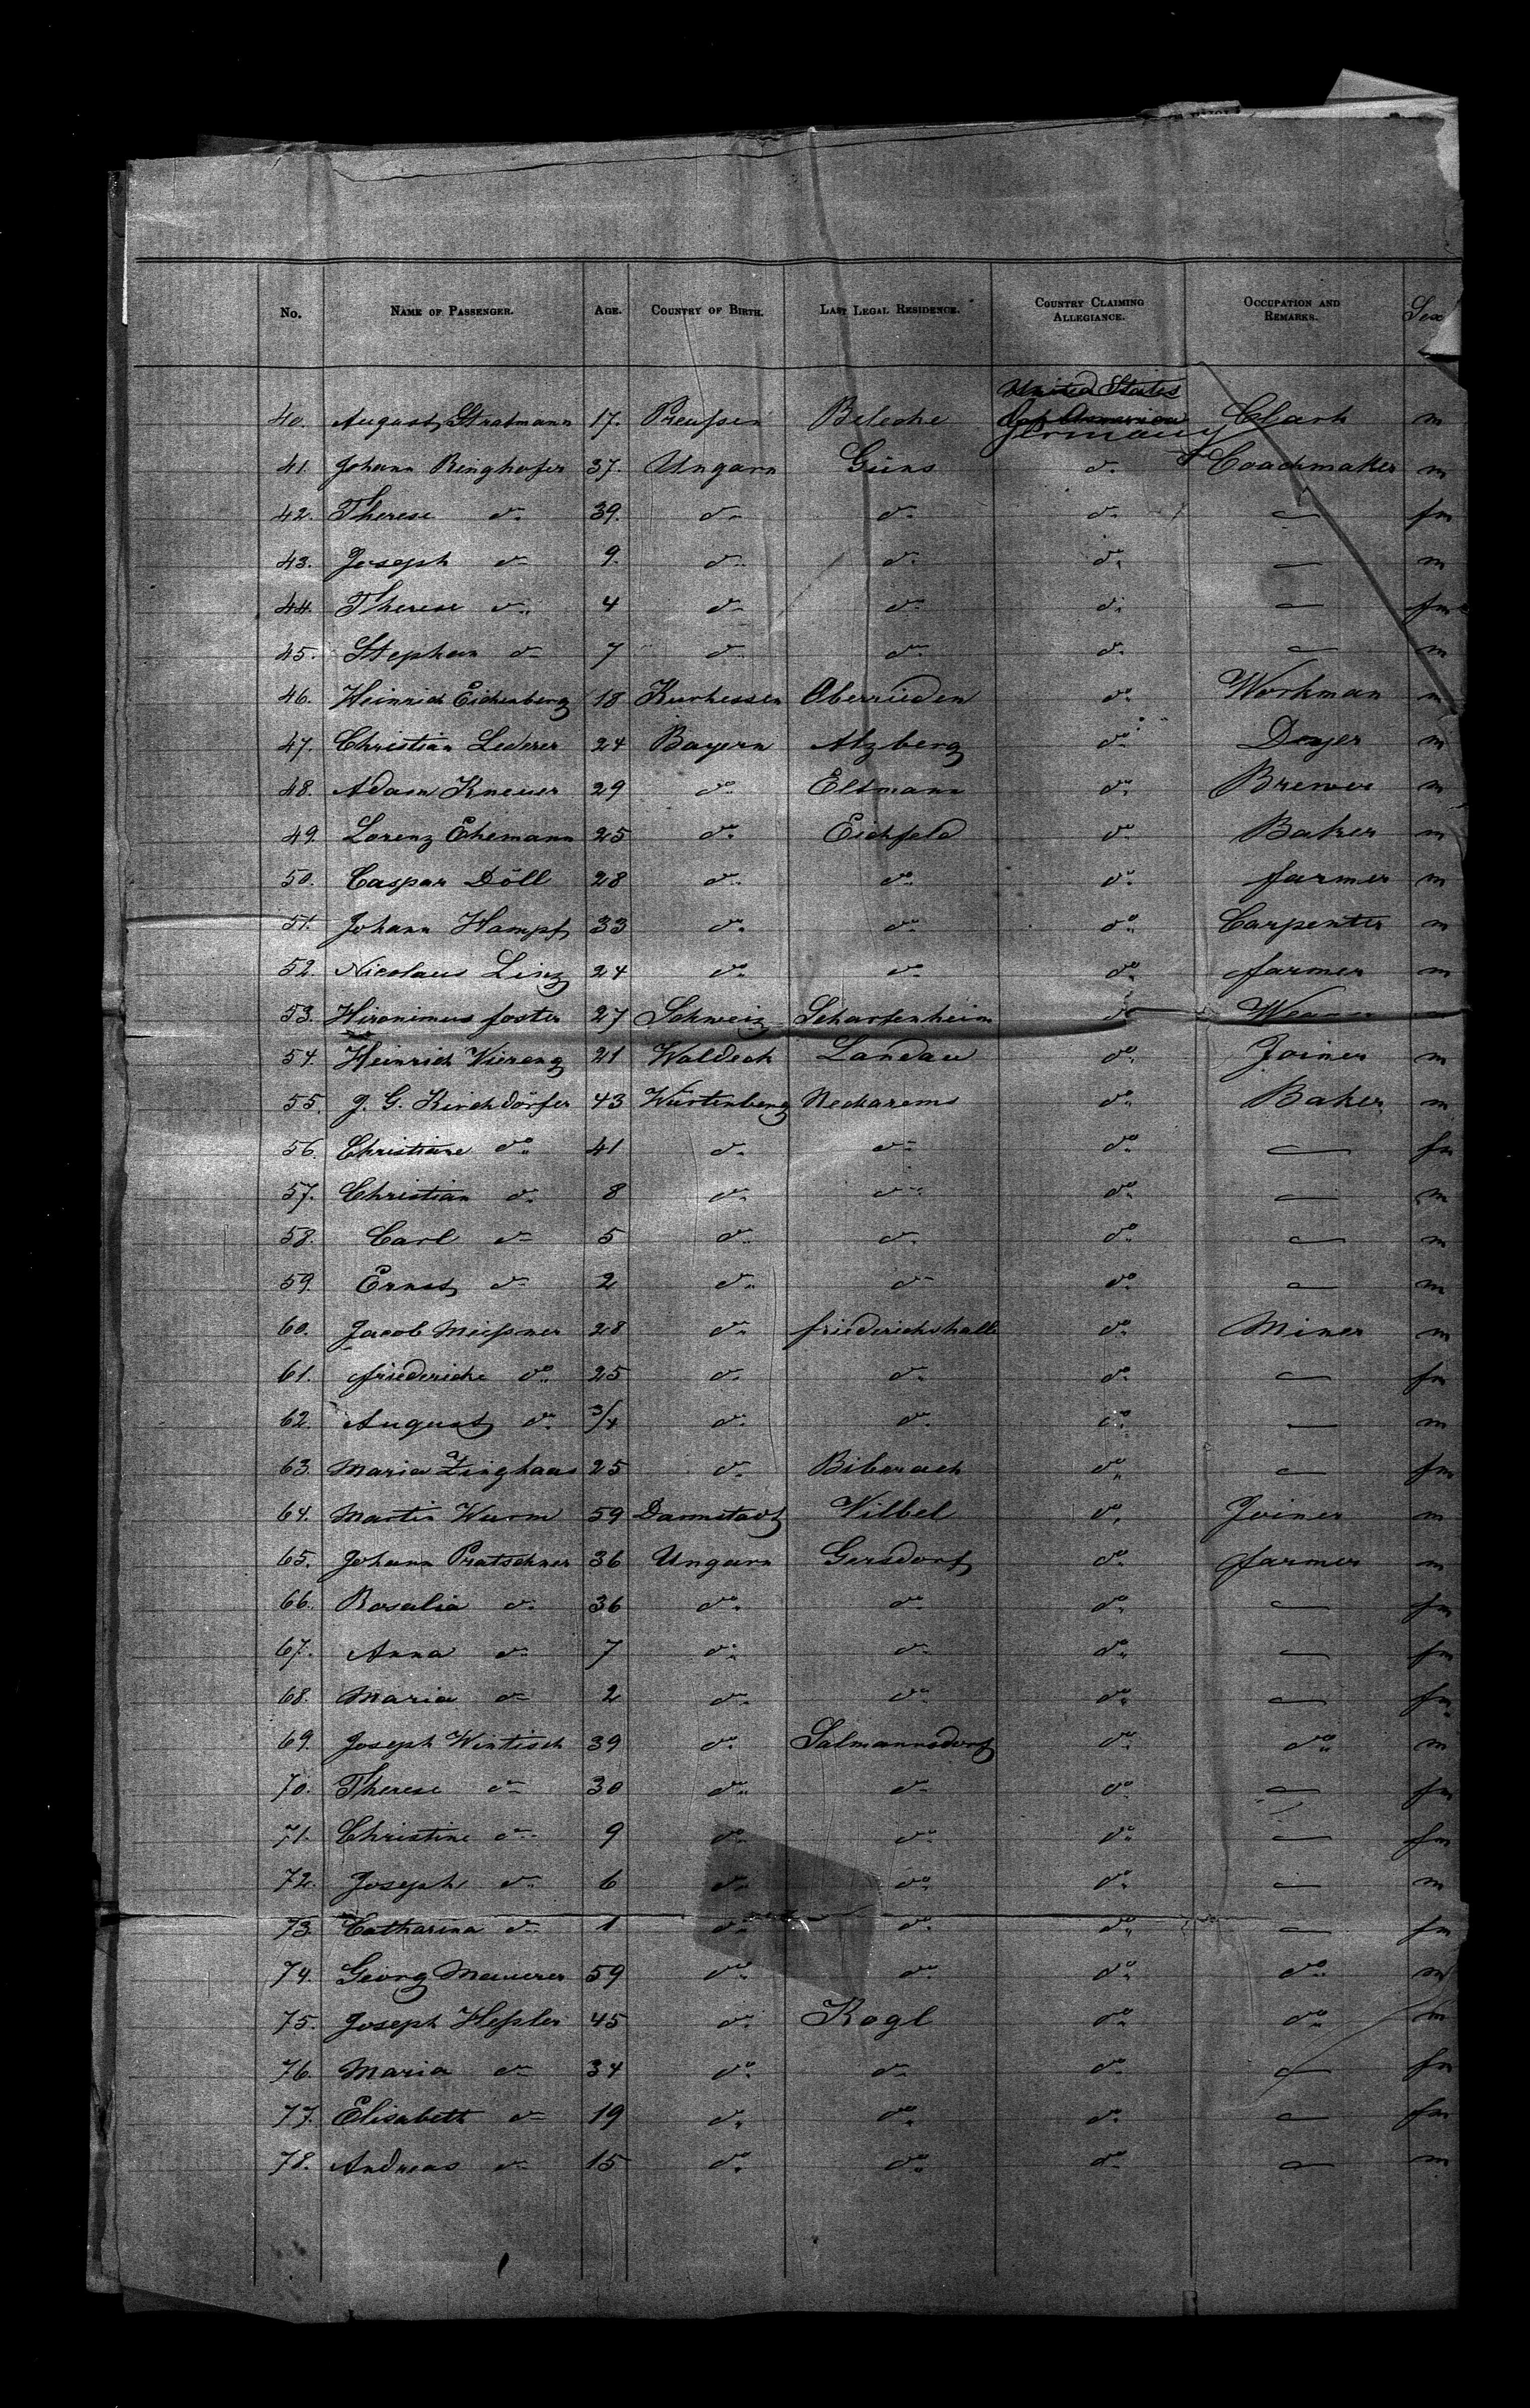 No. Name of Passenger. Age. Country of Birth. Last Legal Residence. Country Claiming Allegiance. Occupation and Remarks. Sex
United States
40. August Stratmann 17. Preußen Beleche Germany Clark m
41. Johann Ringhofer 37. Ungarn Güns do Coachmaker m
42. Therese do 39. do do do — fm
43. Joseph do 9. do do do — m
44. Therese do 4 do do do — fm
45. Stephan do 7 do do do — m
46. Heinrich Eichenberg 18 Kurhessen Oberrieden do Workman m
47. Christian Lederer 24 Bayern Atzberg do Deyer m
48. Adam Kneuer 29 do Eltmann do Brewer m
49. Lorenz Ehemann 25 do Eichfeld do Baker m
50. Caspar Döll 28 do do do farmer m
51. Johann Hampf 33 do do do Carpenter m
52. Nicolaus Linz 24 do do do farmer m
53. Hironimus foster 27 Schweiz Scharfenheim do
54. Heinrich Viereng 21 Waldeck Landau do Joiner m
55. J. G. Kirchdörfer 43 Würtenberg Neckarems do Baker m
56. Christiane do 41 do do do — fm
57. Christian do 8 do do do — m
58. Carl do 5 do do do — m
59. Ernst do 2 do do do — m
60. Jacob Meißner 28 do friederichshall do Miner m
61. friederiche do 25 do do do — fm
62. August do 3/4 do do do — m
63. Maria Zinghaas 25 do Biberach do — fm
64. Martin Wurm 59 Darmstadt Vilbel do Joiner m
65. Johann Pratschner 36 Ungarn Gersdorf do farmer m
66. Rosalia do 36 do do do — fm
67. Anna do 7 do do do — fm
68. Maria do 2 do do do — fm
69. Joseph Wintisch 39 do Salmannsdorf do do m
70. Therese do 30 do do do — fm
71. Christine do 9 do do do — fm
72. Joseph do 6 do do do — m
73. Catharina do 1 do do do — fm
74. Georg Meuerer 59 do do do do m
75. Joseph Heßler 45 do Kogl do do m
76. Maria do 34 do do do — fm
77. Elisabett do 19 do do do — fm
78. Andreas do 15 do do do — m